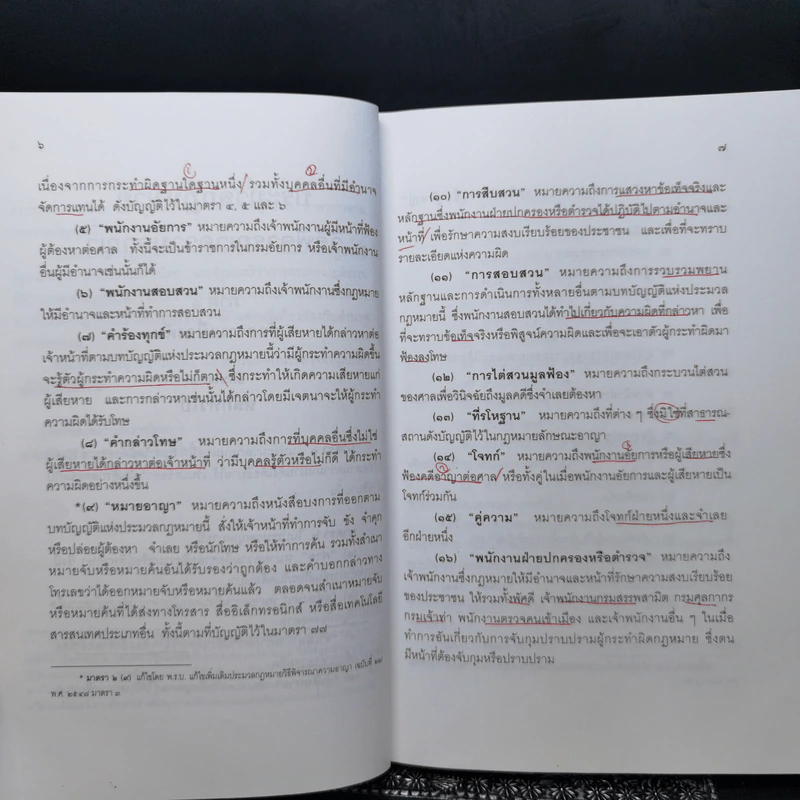 ๖
เนื่องจากการกระทำผิดฐานใดฐานหนึ่ง รวมทั้งบุคคลอื่นที่มีอำนาจ
จัดการแทนได้ ดังบัญญัติไว้ในมาตรา ๔, ๕ และ ๖
(๕) “พนักงานอัยการ” หมายความถึงเจ้าพนักงานผู้มีหน้าที่ฟ้อง
ผู้ต้องหาต่อศาล ทั้งนี้จะเป็นข้าราชการในกรมอัยการ หรือเจ้าพนักงาน
อื่นผู้มีอำนาจเช่นนั้นก็ได้
(๖) “พนักงานสอบสวน” หมายความถึงเจ้าพนักงานซึ่งกฎหมาย
ให้มีอำนาจและหน้าที่ทำการสอบสวน
(๗) “คำร้องทุกข์” หมายความถึงการที่ผู้เสียหายได้กล่าวหาต่อ
เจ้าหน้าที่ตามบทบัญญัติแห่งประมวลกฎหมายนี้ว่ามีผู้กระทำความผิดขึ้น
จะรู้ตัวผู้กระทำความผิดหรือไม่ก็ตาม ซึ่งกระทำให้เกิดความเสียหายแก่
ผู้เสียหาย และการกล่าวหาเช่นนั้นได้กล่าวโดยมีเจตนาจะให้ผู้กระทำ
ความผิดได้รับโทษ
(๘) “คำกล่าวโทษ” หมายความถึงการที่บุคคลอื่นซึ่งไม่ใช่
ผู้เสียหายได้กล่าวหาต่อเจ้าหน้าที่ ว่ามีบุคคลรู้ตัวหรือไม่ก็ดี ได้กระทำ
ความผิดอย่างหนึ่งขึ้น
*(๙) “หมายอาญา” หมายความถึงหนังสือบงการที่ออกตาม
บทบัญญัติแห่งประมวลกฎหมายนี้ สั่งให้เจ้าหน้าที่ทำการจับ ขัง จำคุก
หรือปล่อยผู้ต้องหา จำเลย หรือนักโทษ หรือให้ทำการค้น รวมทั้งสำเนา
หมายจับหรือหมายค้นอันได้รับรองว่าถูกต้อง และคำบอกกล่าวทาง
โทรเลขว่าได้ออกหมายจับหรือหมายค้นแล้ว ตลอดจนสำเนาหมายจับ
หรือหมายค้นที่ได้ส่งทางโทรสาร สื่ออิเล็กทรอนิกส์ หรือสื่อเทคโนโลยี
สารสนเทศประเภทอื่น ทั้งนี้ตามที่บัญญัติไว้ในมาตรา ๗๗
* มาตรา ๒ (๙) แก้ไขโดย พ.ร.บ. แก้ไขเพิ่มเติมประมวลกฎหมายวิธีพิจารณาความอาญา (ฉบับที่ ๒๒)
พ.ศ. ๒๕๔๗ มาตรา ๓
๗
(๑๐) “การสืบสวน” หมายความถึงการแสวงหาข้อเท็จจริงและ
หลักฐานซึ่งพนักงานฝ่ายปกครองหรือตำรวจได้ปฏิบัติไปตามอำนาจและ
หน้าที่ เพื่อรักษาความสงบเรียบร้อยของประชาชน และเพื่อที่จะทราบ
รายละเอียดแห่งความผิด
(๑๑) “การสอบสวน” หมายความถึงการรวบรวมพยาน
หลักฐานและการดำเนินการทั้งหลายอื่นตามบทบัญญัติแห่งประมวล
กฎหมายนี้ ซึ่งพนักงานสอบสวนได้ทำไปเกี่ยวกับความผิดที่กล่าวหา เพื่อ
ที่จะทราบข้อเท็จจริงหรือพิสูจน์ความผิดและเพื่อจะเอาตัวผู้กระทำผิดมา
ฟ้องลงโทษ
(๑๒) “การไต่สวนมูลฟ้อง” หมายความถึงกระบวนไต่สวน
ของศาลเพื่อวินิจฉัยถึงมูลคดีซึ่งจำเลยต้องหา
(๑๓) “ที่รโหฐาน” หมายความถึงที่ต่าง ๆ ซึ่งมิใช่ที่สาธารณ-
สถานดังบัญญัติไว้ในกฎหมายลักษณะอาญา
(๑๔) “โจทก์” หมายความถึงพนักงานอัยการหรือผู้เสียหายซึ่ง
ฟ้องคดีอาญาต่อศาล หรือทั้งคู่ในเมื่อพนักงานอัยการและผู้เสียหายเป็น
โจทก์ร่วมกัน
(๑๕) “คู่ความ” หมายความถึงโจทก์ฝ่ายหนึ่งและจำเลย
อีกฝ่ายหนึ่ง
(๑๖) “พนักงานฝ่ายปกครองหรือตำรวจ” หมายความถึง
เจ้าพนักงานซึ่งกฎหมายให้มีอำนาจและหน้าที่รักษาความสงบเรียบร้อย
ของประชาชน ให้รวมทั้งพัศดี เจ้าพนักงานกรมสรรพสามิต กรมศุลกากร
กรมเจ้าท่า พนักงานตรวจคนเข้าเมือง และเจ้าพนักงานอื่น ๆ ในเมื่อ
ทำการอันเกี่ยวกับการจับกุมปราบปรามผู้กระทำผิดกฎหมาย ซึ่งตน
มีหน้าที่ต้องจับกุมหรือปราบปราม